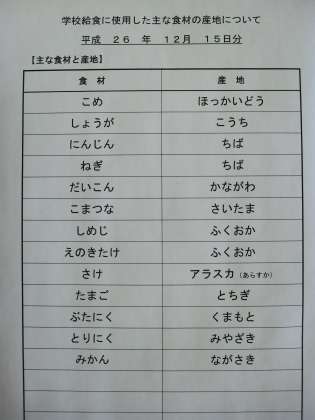 学校給食に使用した主な食材の産地について
平成　２６　年　１２月　１５日分
【主な食材と産地】
食　材　産　地
こめ　ほっかいどう
しょうが　こうち
にんじん　ちば
ねぎ　ちば
だいこん　かながわ
こまつな　さいたま
しめじ　ふくおか
えのきたけ　ふくおか
さけ　アラスカ（あらすか）
たまご　とちぎ
ぶたにく　くまもと
とりにく　みやざき
みかん　ながさき